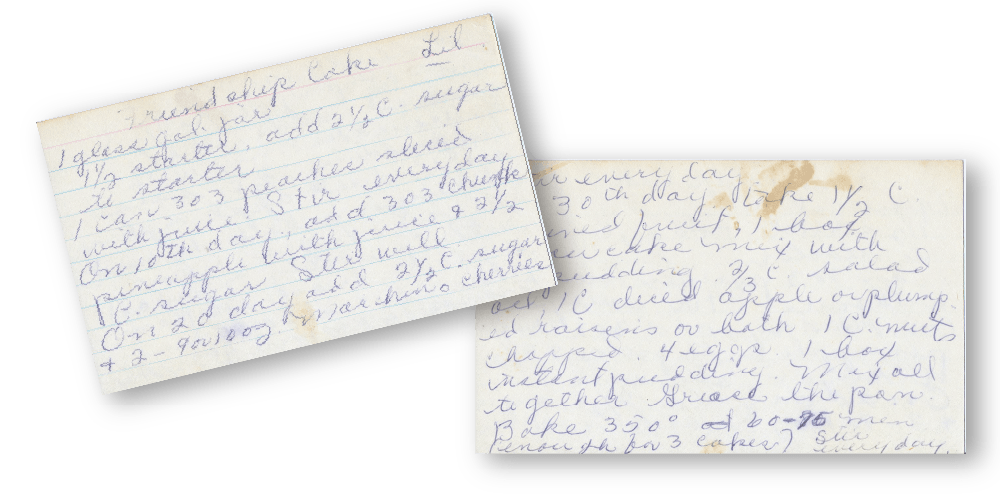 Friendship Cake Lil
1 glass gal. jar
1½ starter, add 2½ C. sugar
to starter
1 can 303 peaches sliced
with juice Stir everyday
On 10th day, add 303 chunk
pineapple with juice & 2½
C. sugar Stir well
On 20 day add 2½ C. sugar
+ 2 - 9 or 10 oz marchino cherries
everyday
30th day. take 1½ C.
fruit, 1 box
cake mix with
pudding ⅔ C. salad
oil 1C diced apple or plump
ed raisens or both 1 C. nuts
chopped. 4 eggs. 1 box
instant pudding. Mix all
together Grease the pan.
Bake 350° 60-75 men
(enough for 3 cakes) Stir
every day.